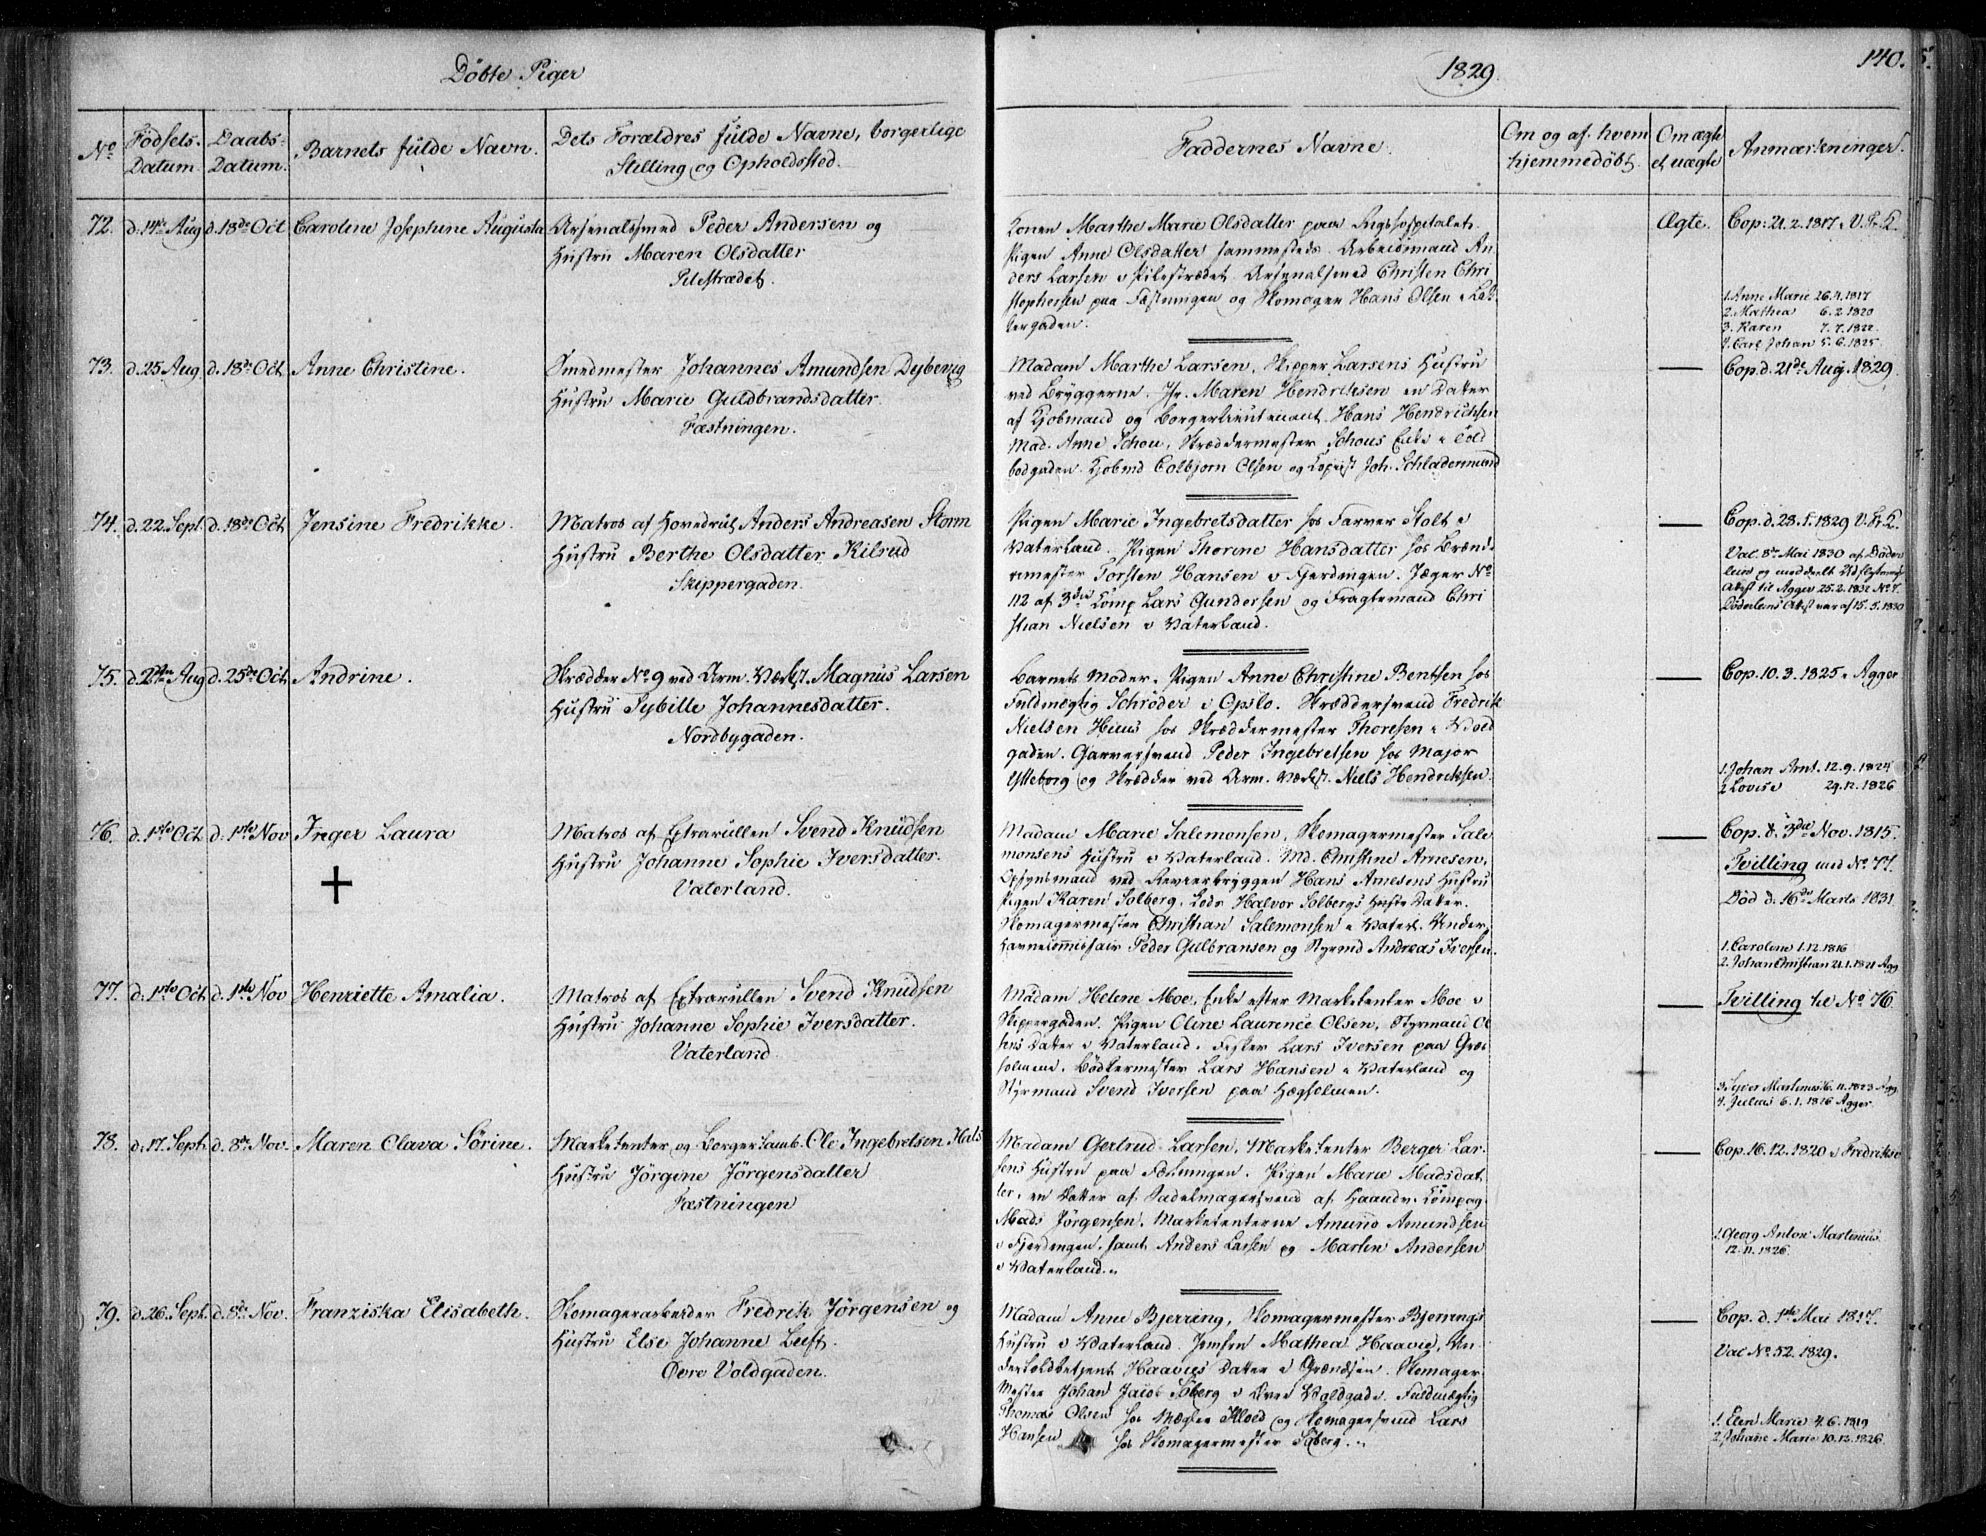 Döbte Piger
1829
140.
No
Födsels-
Datum
Daabs-
Datum.
Barnets fulde Navn.
Dets Forældres fulde Navne, borgerlige
Stilling og Opholdssted.
Faddernes Navne.
Om og af hvem
hjemmedöbt.
Om ægte
el uægte
Anmærkninger.
72. d. 14de Aug d. 18de Oct Caroline Josephine Augusta
Arsenalsmed Peder Andersen og
Hustru Maren Olsdatter
Pilestrædet.
Konen Marthe Marie Olsdatter paa Rigshospitalet.
Pigen Anne Olsdatter sammesteds. Arbeidsmand An
ders Larsen i Pilestrædet. Arsenalsmed Christen Chri
stophersen paa Fæstningen og Skomager Hans Olsen i Rak
kergaden.
Ægte.
Cop: 21.2.1817 i V. Fr. K.
1. Anne Marie 26.4.1817
2. Mathea 6.2.1820
3. Karen 7.7.1822.
4. Carl Johan 5.6.1825.
73. d. 25 Aug. d. 18de Oct Anne Christine.
Smedmester Johannes Amundsen Dybevig
Hustru Marie Guldbrandsdatter
Fæstningen.
Madam Marthe Larsen, Skipper Larsens Hustru
ved Bryggerne. Jfr. Maren Hendriksen en Datter
af Kjöbmand og Borgerlieutenant Hans Hendrichsen
Mad. Anne Schou, Skræddermester Schous Enke i Told
bodgaden. Kjöbmd Colbjorn Olsen og Copiist Joh. Schladermund
Cop. d. 21de Aug. 1829.
74. d. 22 Sept. d. 18de Oct. Jensine Fredrikke.
Matros af Hovedrul. Anders Andreasen Storm
Hustru Berthe Olsdatter Kilsrud
Skippergaden.
Pigen Marie Ingebretsdatter hos Farver Stolt i
Vaterland. Pigen Thorine Hansdatter hos Brænd-
rimester Torsten Hansen i Fjerdingen. Jæger No
112 af 3die Comp Lars Gundersen og Fragtemand Chri
stian Nielsen i Vaterland.
Cop. d. 23.1.1829 V. Fr. K.
Vac. 8de Mai 1830 af Döder
lein og meddeelt Udflytnings
Attest til Agger 25.2.1832 No 7.
Döderleins Attest var af 15.5.1830
75. d. 27de Aug d. 25de Oct. Andrine.
Skrædder No 9 ved Arm. Værkst. Magnus Larsen
Hustru Sybille Johannesdatter.
Nordbygaden.
Barnets Moder. Pigen Anne Christine Bentsen hos
Fuldmægtig Schröder i Opslo. Skræddersvend Fredrik
Nielsen Huus hos Skræddermester Thoresen i Vold
gaden. Garversvend Peder Ingebretsen hos Major
Ytteborg og Skrædder ved Arm. Værkst. Niels Hendriksen.
Cop. 10.3.1825 i Agger
1. Johan Arnt. 12.9.1824
2. Lovise 29.12.1826
76. d. 1ste Oct. d. 1ste Nov Inger Laura
+
Matros af Extrarullen Svend Knudsen
Hustru Johanne Sophie Iversdatter.
Vaterland.
Madam Marie Salemonsen, Skomagermester Sale
monsens Hustru i Vaterland. Md. Christine Arnesen,
Opsynsmand ved Revierbryggen Hans Arnesens Hustru
Pigen Karen Solberg, Lods Halvor Solbergs Hustrs Datter.
Skomagermester Christian Salemonsen i Vaterl. Under
havnecommissair Peder Gulbransen og Styrmd Andreas Iversen.
Cop. d. 3die Nov. 1815.
Tvilling med No 77.
Död d. 16de Marts 1831
1. Caroline 1.12.1816
2. Johan Christian 21.1.1821 Agg
77. d. 1ste Oct. d. 1ste Nov Henriette Amalia.
Matros af Extrarullen Svend Knudsen
Hustru Johanne Sophie Iversdatter.
Vaterland.
Madam Helene Moe, Enke efter Marketenter Moe i
Skippergaden. Pigen Oline Laurence Olsen, Styrmand Ol
sens Datter i Vaterland. Fisker Lars Iversen paa Græs
holmene. Bödkermester Lars Hansen i Vaterland og
Styrmand Svend Iversen paa Hægholmen.
Tvilling til No 76.
3. Syver Martinus 16.11.1823 Agg
4. Julius 6.1.1826 Agger.
78. d. 17. Sept. d. 8de Nov. Maren Olava Sörine.
Marketenter og Borger samb. Ole Ingebretsen Hals
Hustru Jörgine Jörgensdatter
Fæstningen
Madam Gertrud Larsen, Marketenter Berger Lar-
sens Hustru paa Fæstningen. Pigen Marie Madsdat
ter, en Datter af Sadelmagersvend af Haandv. Compag.
Mads Jörgensen. Marketenterne Amund Amundsen
i Fjerdingen, samt Anders Larsen og Martin Andersen
i Vaterland.
Cop. 16.12.1820 i Fredrikso
1. Georg Anton Martinius
12.11.1826.
79. d. 26. Sept. d. 8de Nov. Franziska Elisabeth.
Skomagerarbeider Fredrik Jörgensen og
Hustru Else Johanne Leeft.
Övre Voldgaden.
Madam Anne Bjerring, Skomagermester Bjerrings
Hustru i Vaterland. Jomfru Mathea Haavie, Un
dertoldbetjent Haavies Datter i Grændsen. Skomager-
Mester Johan Jacob Söberg i Övre Voldgade. Fuldmægtig
Thomas Olsen hos Mægler Kloed og Skomagersvend Lars
Hansen hos Skomagermester Söberg.
Cop. d. 1ste Mai 1817.
Vac No 52. 1829.
1. Elen Marie 4.6.1819
2. Johane Marie 10.12.1826.